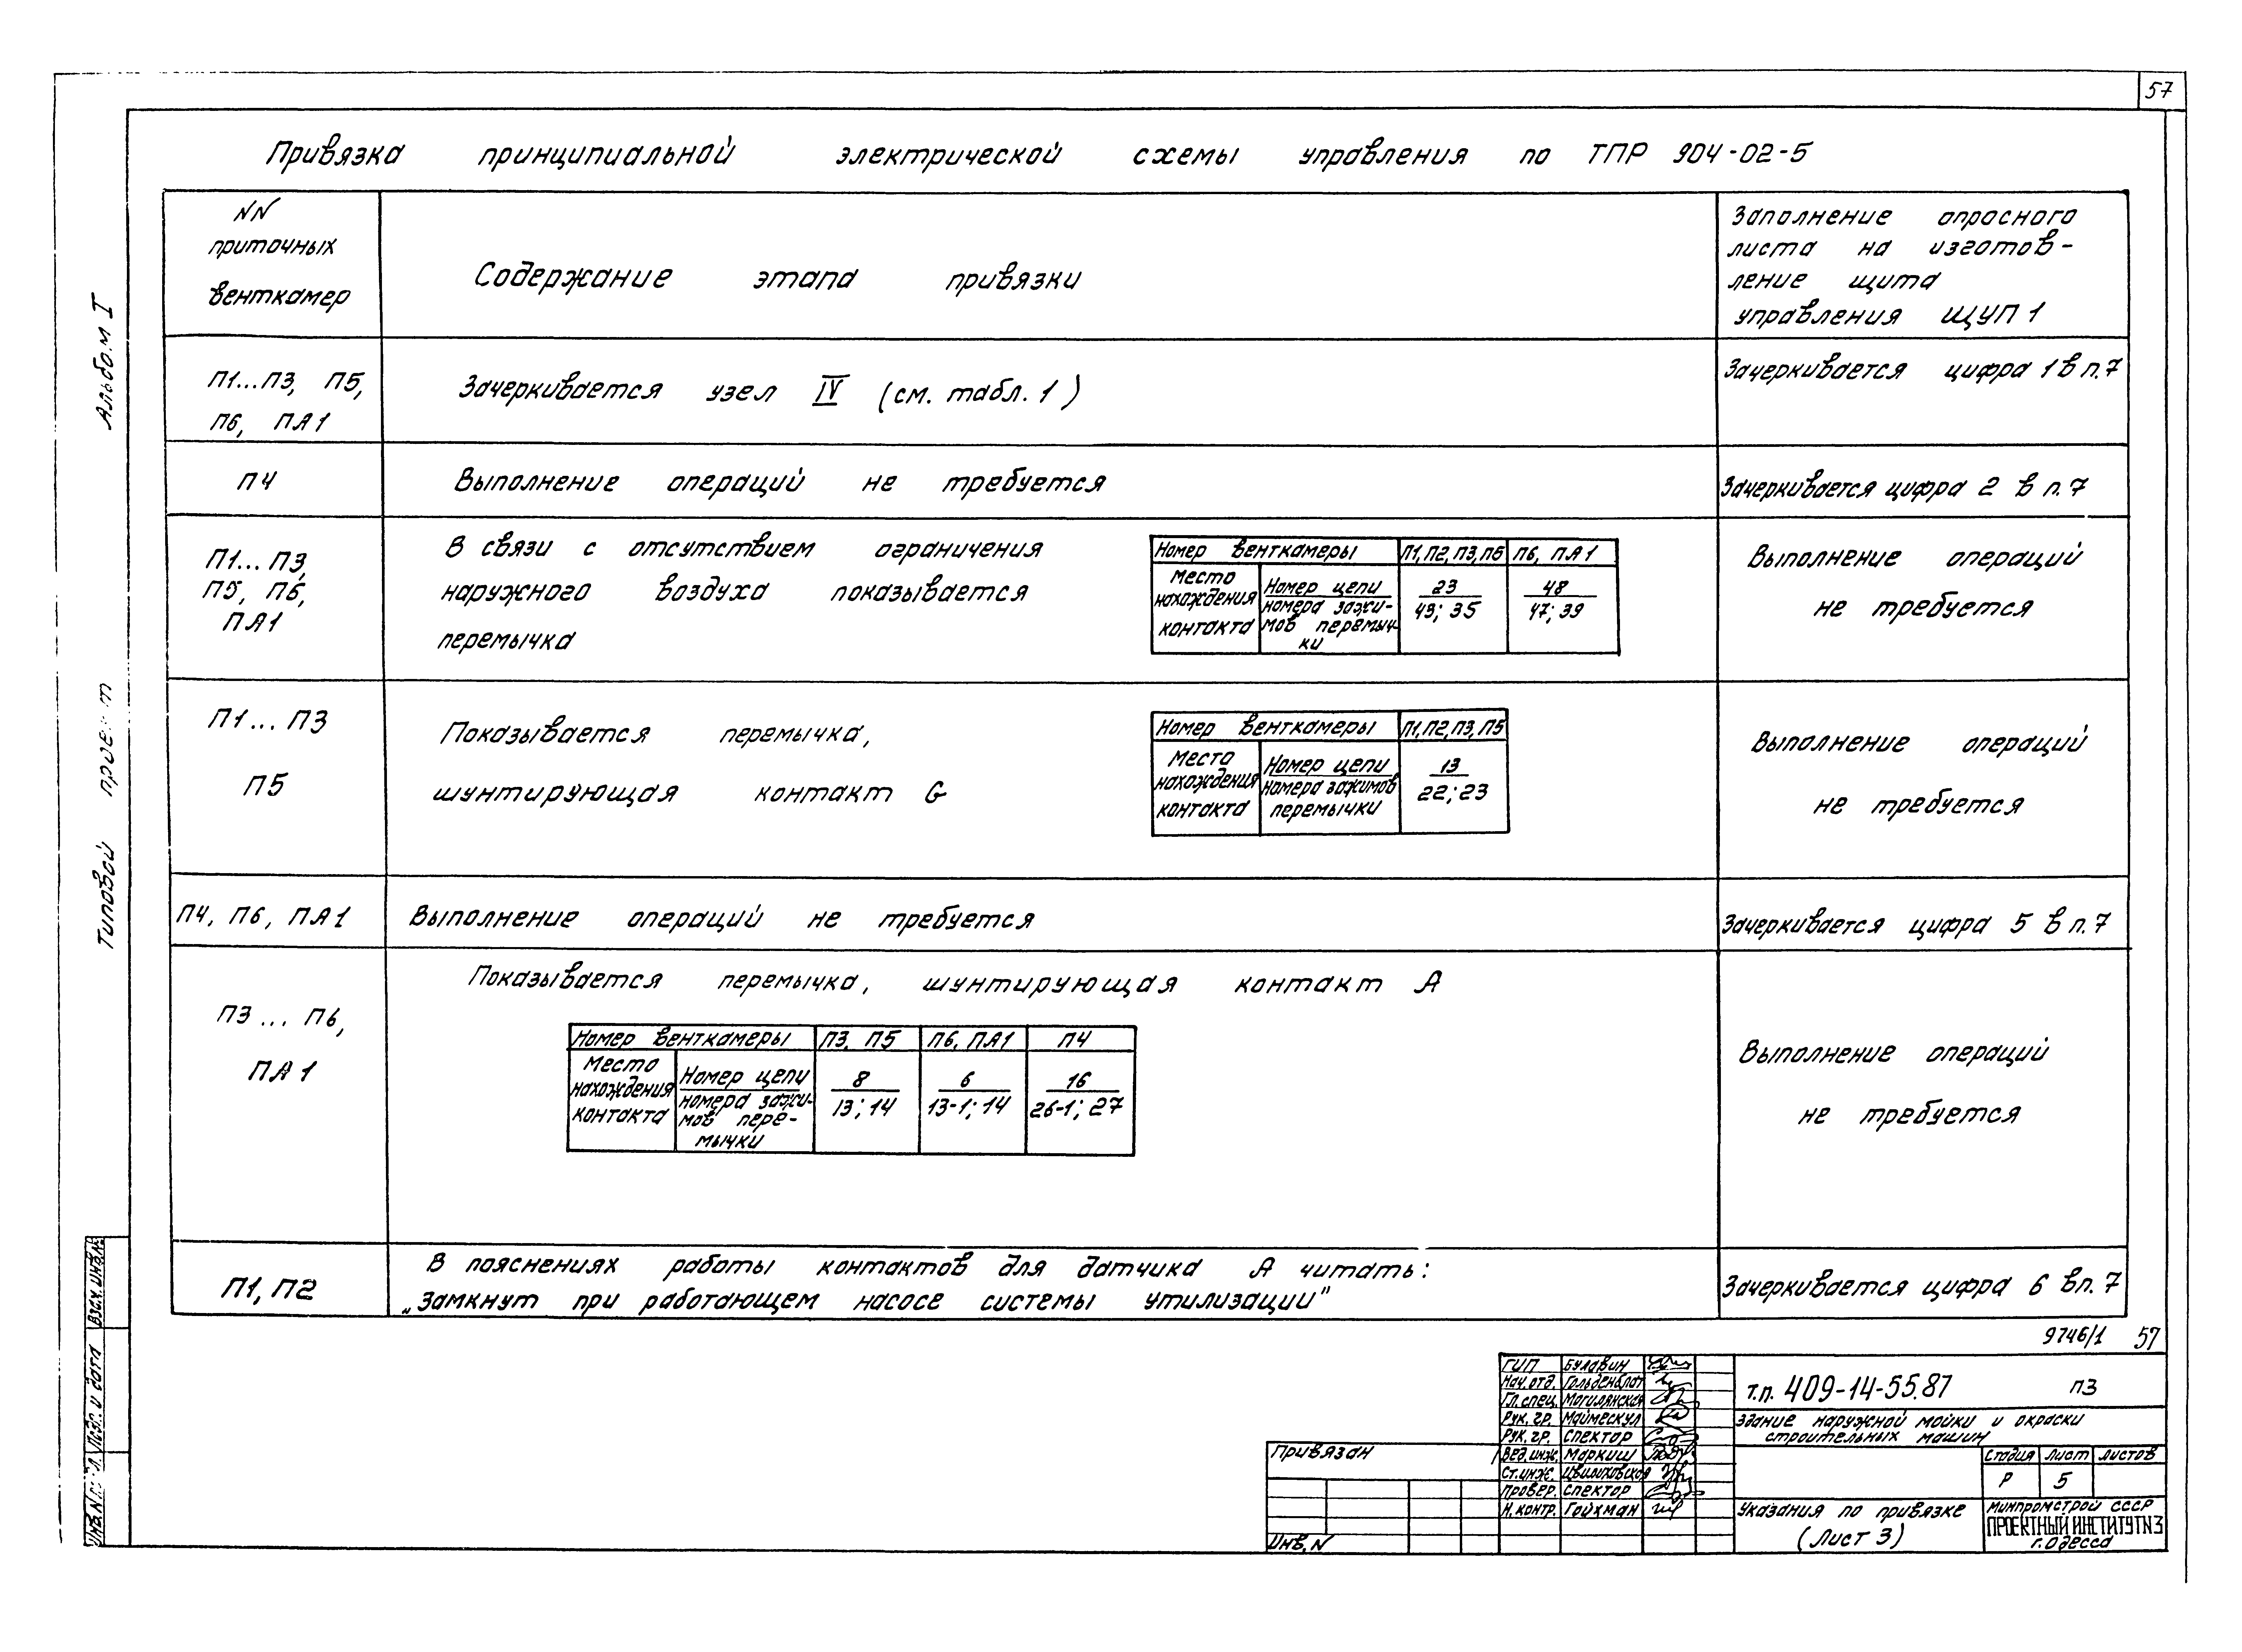 57
Привязка принципиальной электрической схемы управления по ТПР 904-02-5
NN
приточных
венткамер
Содержание этапа привязки
Заполнение опросного
листа на изготов-
ление щита
управления ЩУП 1
П1...П3, П5,
П6, ПА1
Зачеркивается узел IV (см. табл. 1)
Зачеркивается цифра 1 в п.7
П4
Выполнение операций не требуется
Зачеркивается цифра 2 в п.7
П1... П3,
П5, П6,
ПА1
В связи с отсутствием ограничения
наружного воздуха показывается
перемычка
Номер венткамеры П1,П2,П3,П5 П6, ПА1
Место
нахождения
контакта
Номер цепи
номера зажи-
мов перемыч-
ки
23
43; 35
48
47; 39
Выполнение операций
не требуется
П1... П3
П5
Показывается перемычка,
шунтирующая контакт G
Номер венткамеры П1,П2,П3,П5
Место
нахождения
контакта
Номер цепи
номера зажимов
перемычки
13
22; 23
Выполнение операций
не требуется
П4, П6, ПА1
Выполнение операций не требуется
Зачеркивается цифра 5 в п.7
П3... П6,
ПА1
Показывается перемычка, шунтирующая контакт А
Номер венткамеры П3, П5 П6, ПА1 П4
Место
нахождения
контакта
Номер цепи
номера зажи-
мов пере-
мычки
8
13; 14
6
13-1; 14
16
26-1; 27
Выполнение операций
не требуется
П1, П2
В пояснениях работы контактов для датчика А читать:
„Замкнут при работающем насосе системы утилизации"
Зачеркивается цифра 6 в п.7
9746/1 57
Альбом I
Типовой проект
Взам. инв.N
Подп. и дата
Инв.N
Привязан
Инв. N
ГИП Булавин
Нач. отд. Гольденблат
Гл. спец. Могилянская
Рук. гр. Маймескул
Рук. гр. Спектор
Вед. инж. Маркиш
Ст. инж. Цвилиховская
Провер. Спектор
Н. контр. Гойхман
т.п. 409-14-55.87 ПЗ
Здание наружной мойки и окраски
строительных машин
Стадия Лист Листов
Р 5
Указания по привязке
(Лист 3)
Минпромстрой СССР
ПРОЕКТНЫЙ ИНСТИТУТ N3
г. Одесса